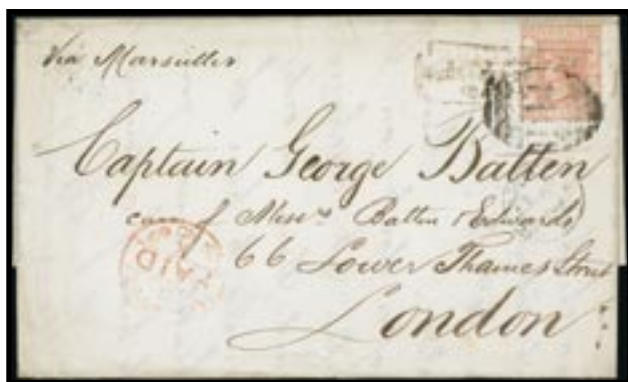 Via Marseilles
Captain George Batten
care of Mess<sup>rs</sup> Batten & Edwards
66 Lower Thames Street
London
PAID